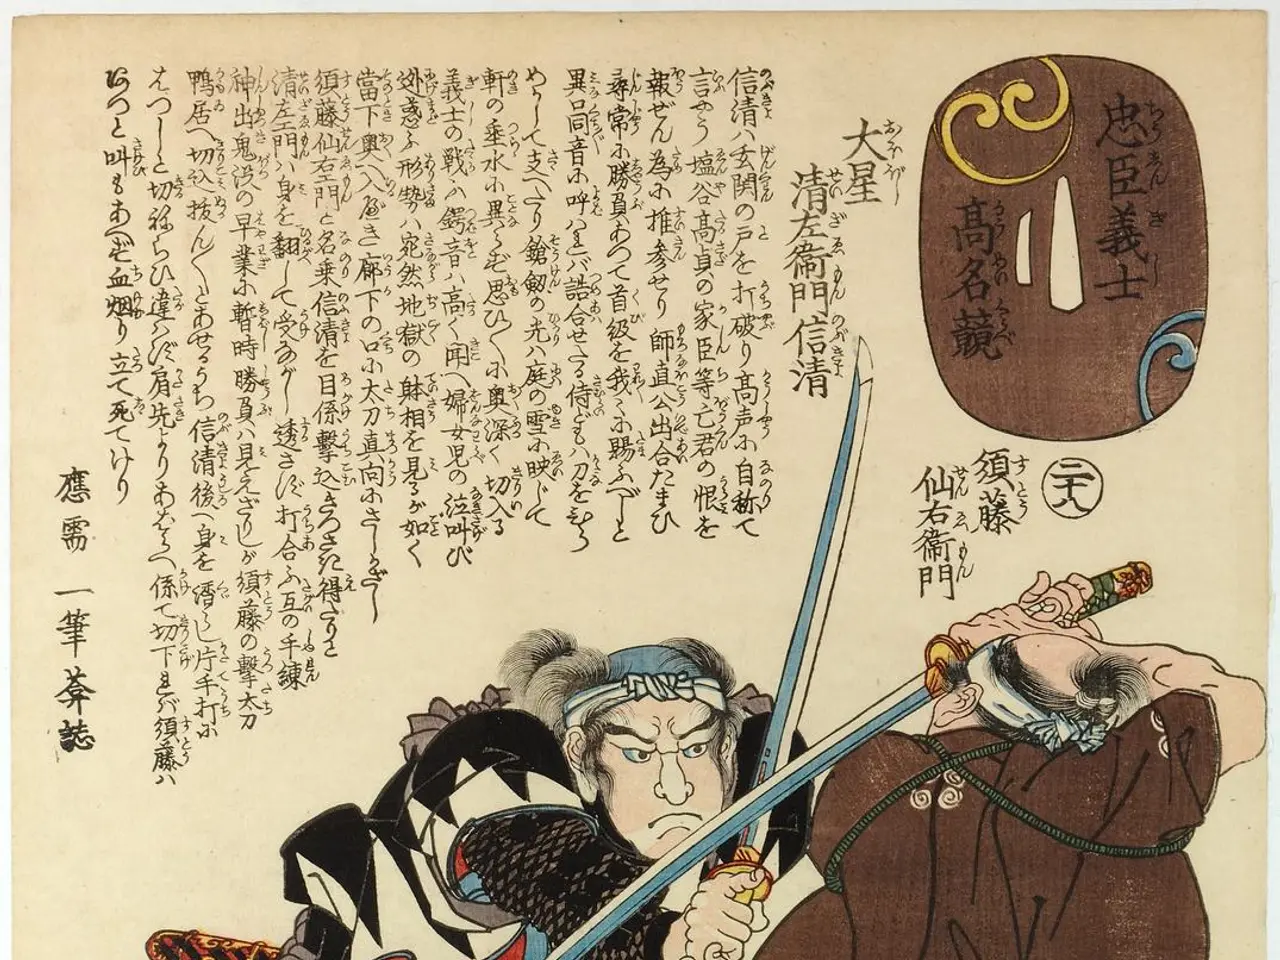 忠臣義士
高名競
二十八
須藤
仙右衛門
大星
清左衛門信清
信清ハ玄関の戸を打破り高声に自称て
言やう塩谷高貞の家臣等亡君の恨を
報ぜん為に推参せり師直公出合たまひ
尋常に勝負あつて首級を我々に賜ふべしと
異口同音に呼はれバ詰合せたる侍どもハ刀を
めして支へたり鎗劔の光ハ庭の雪に映じて
軒の垂氷に異らず思ひ〱に奥深く切入る
義士の戦ハ鍔音ハ高く聞へ婦女児の泣叫び
迯惑ふ形勢ハ宛然地獄の躰相を見るが如く
當下奥へ入べき廊下の口に太刀真向にさしかざし
須藤仙右エ門と名乗信清を目係撃込きつさき得たりと
清左エ門ハ身を翻して受ながし透さず打合ふ互の手練
神出鬼没の早業に暫時勝負ハ見えざりしが須藤の撃太刀
鴨居へ切込抜ん〱とあせるうち信清後へ身を潜らし片手打に
はつしと切ねらひ違ハず肩先よりあばらへ係て切下れバ須藤ハ
あつと叫もあへず血烟り立て死てけり
應需 一筆菴誌